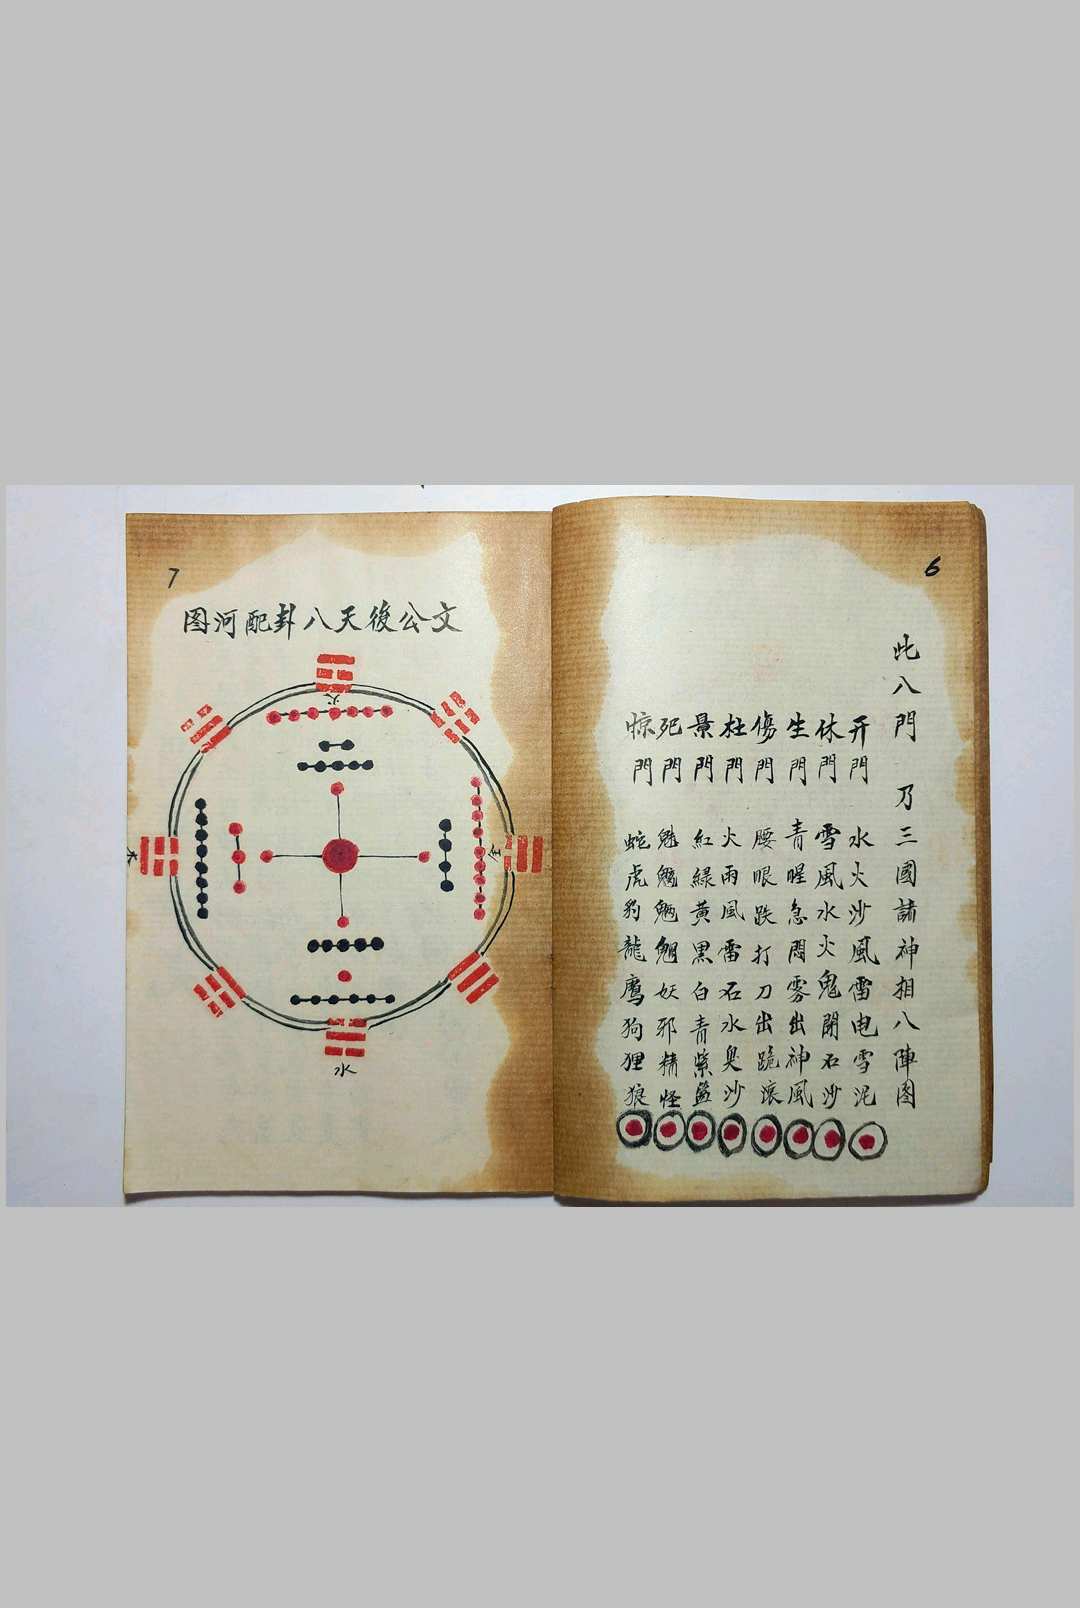 6
此八門乃三國諸神相八陣图
开門 水火沙風雷电雪泥
休門 雪風水火鬼閉石沙
生門 青腥急悶雾出神風
傷門 腰眼跌打刀出跪滾
杜門 火雨風雷石水臭沙
景門 紅緑黄黒白青紫藍
死門 魅魑魎魍妖邪精怪
惊門 蛇虎豹龍鹰狗狸狼
7
图河配卦八天後公文
火
木
金
水